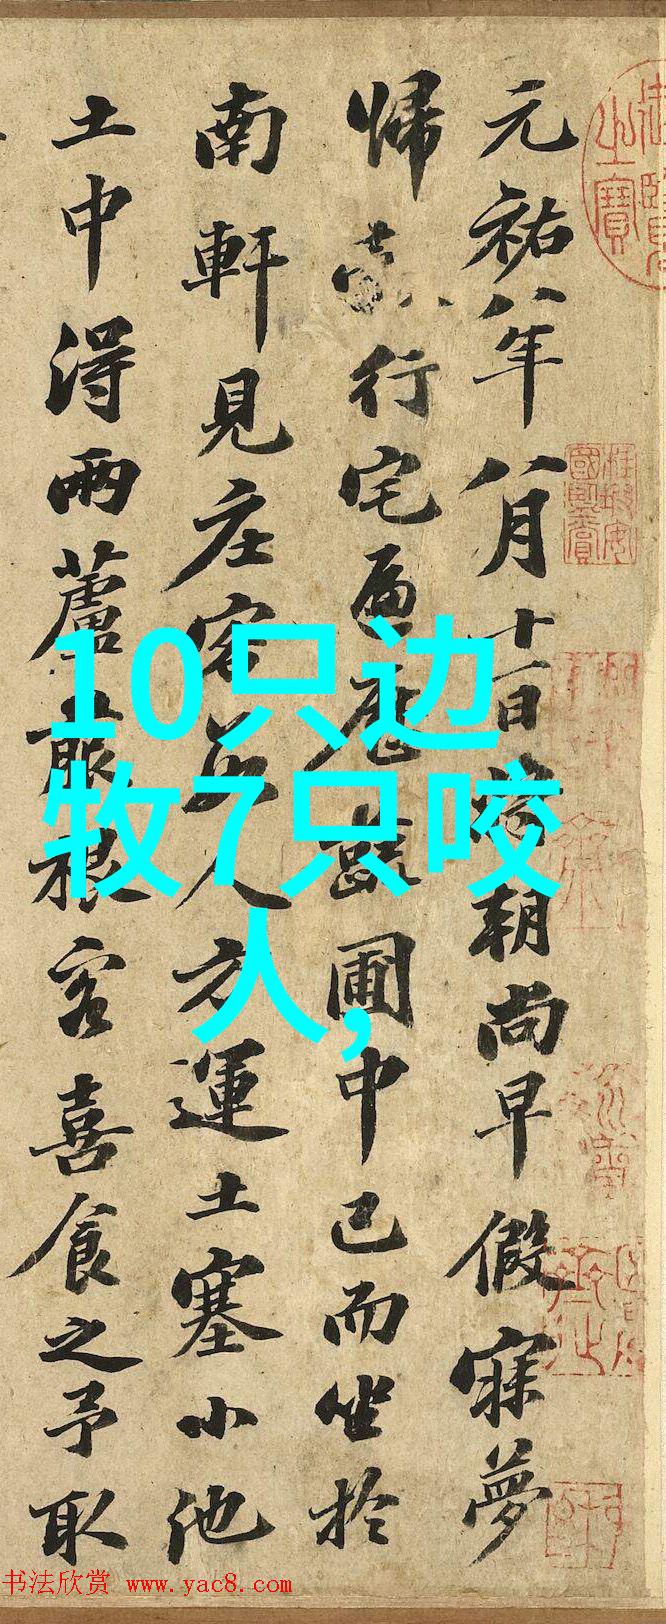 元祐八年八月十一日將朝尚早假寐夢
歸 行宅遍歷蔬圃中已而坐於
南軒見庄客數人方運土塞小池
土中得兩蘆菔根客喜食之予取
10只边
牧7只咬
人,
之寶
书法欣赏 www.yac8.com